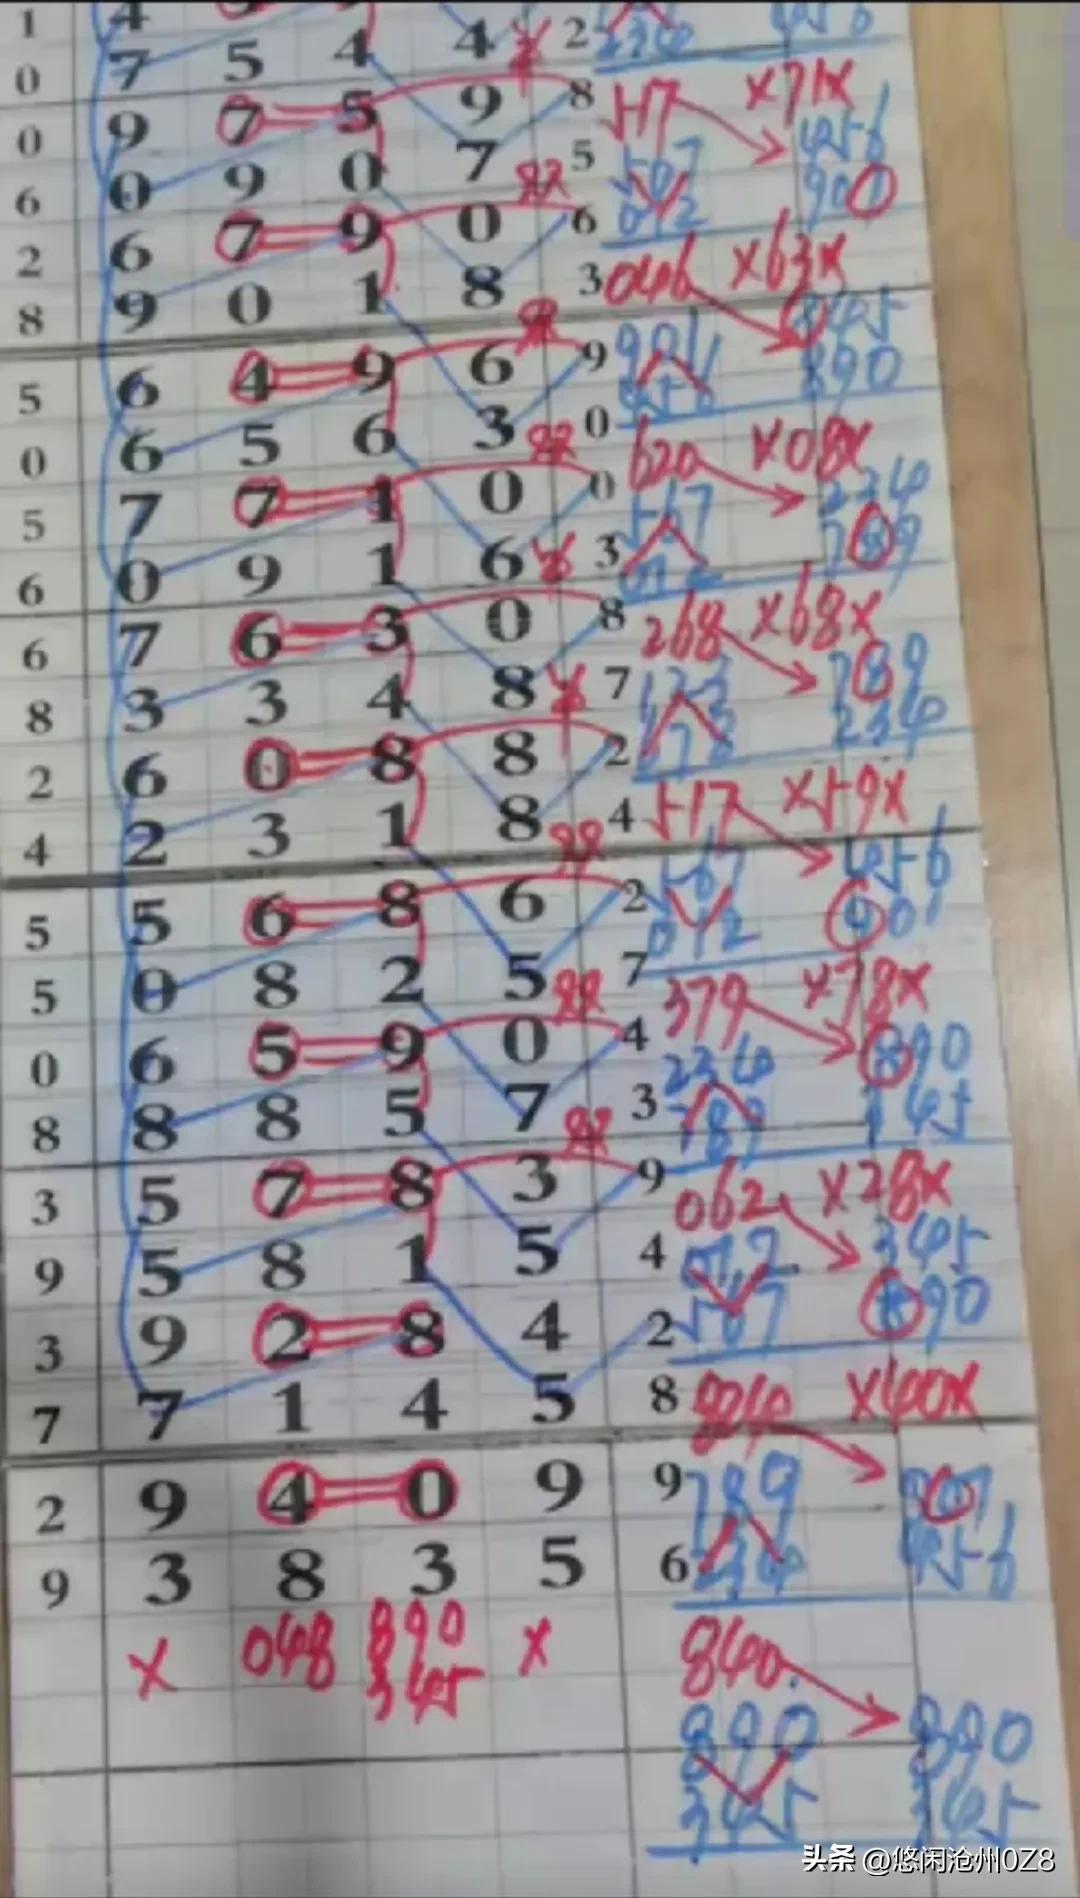 1 4
0 7 5 4 4 2
0 9 7 5 9 8 517 x71x
6 0 9 0 7 5 567 456
2 6 7 9 0 6 012 901
8 9 0 1 8 3 046 x63x
5 6 4 9 6 9 901 345
0 6 5 6 3 0 456 890
5 7 7 1 0 0 620 x08x
6 0 9 1 6 3 567 234
6 7 6 3 0 8 268 x68x
8 3 3 4 8 7 123 789
2 6 0 8 8 2 678 234
4 2 3 1 8 4 517 x59x
5 5 6 8 6 2 567 456
5 0 8 2 5 7 012 901
0 6 5 9 0 4 379 x78x
8 8 8 5 7 3 234 890
789 345
3 5 7 8 3 9 062 x28x
9 5 8 1 5 4 012 345
3 9 2 8 4 2 567 890
7 7 1 4 5 8 x40x
2 9 4 0 9 9 789
9 3 8 3 5 6 234 456
x 048 890 x 840
345
890 890
345 345
头条 @悠闲沧州0Z8